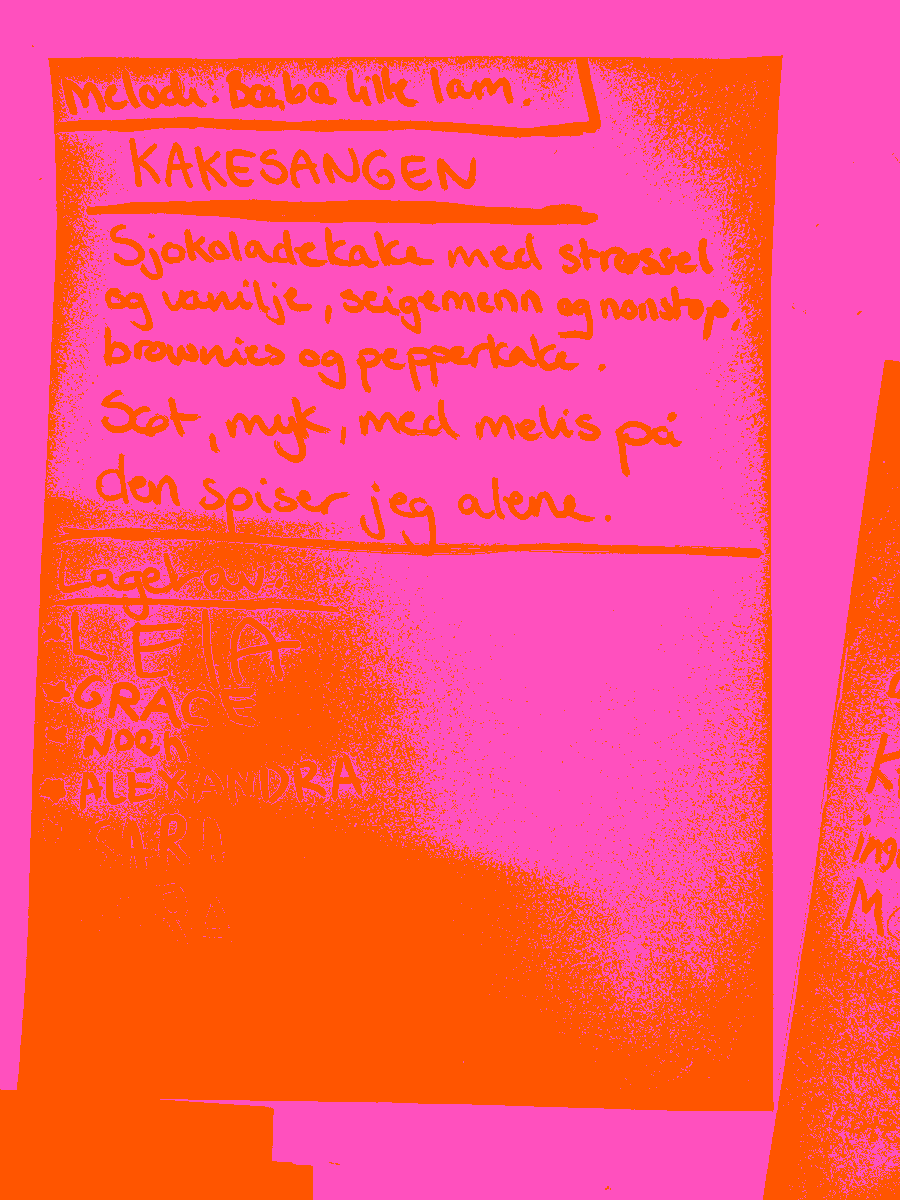 Melodi: Bæ bæ lille lam.
KAKESANGEN
Sjokoladekake med strøssel
og vanilje, seigemenn og nonstop,
brownies og pepperkake.
Søt, myk, med melis på
den spiser jeg alene.
Laget av:
LEIA
GRACE
ALEXANDRA
SARA